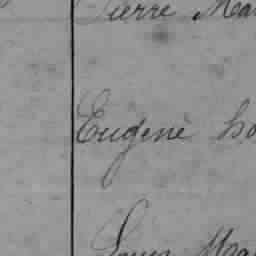 Pierre Ma
Eugène
Louis Ma